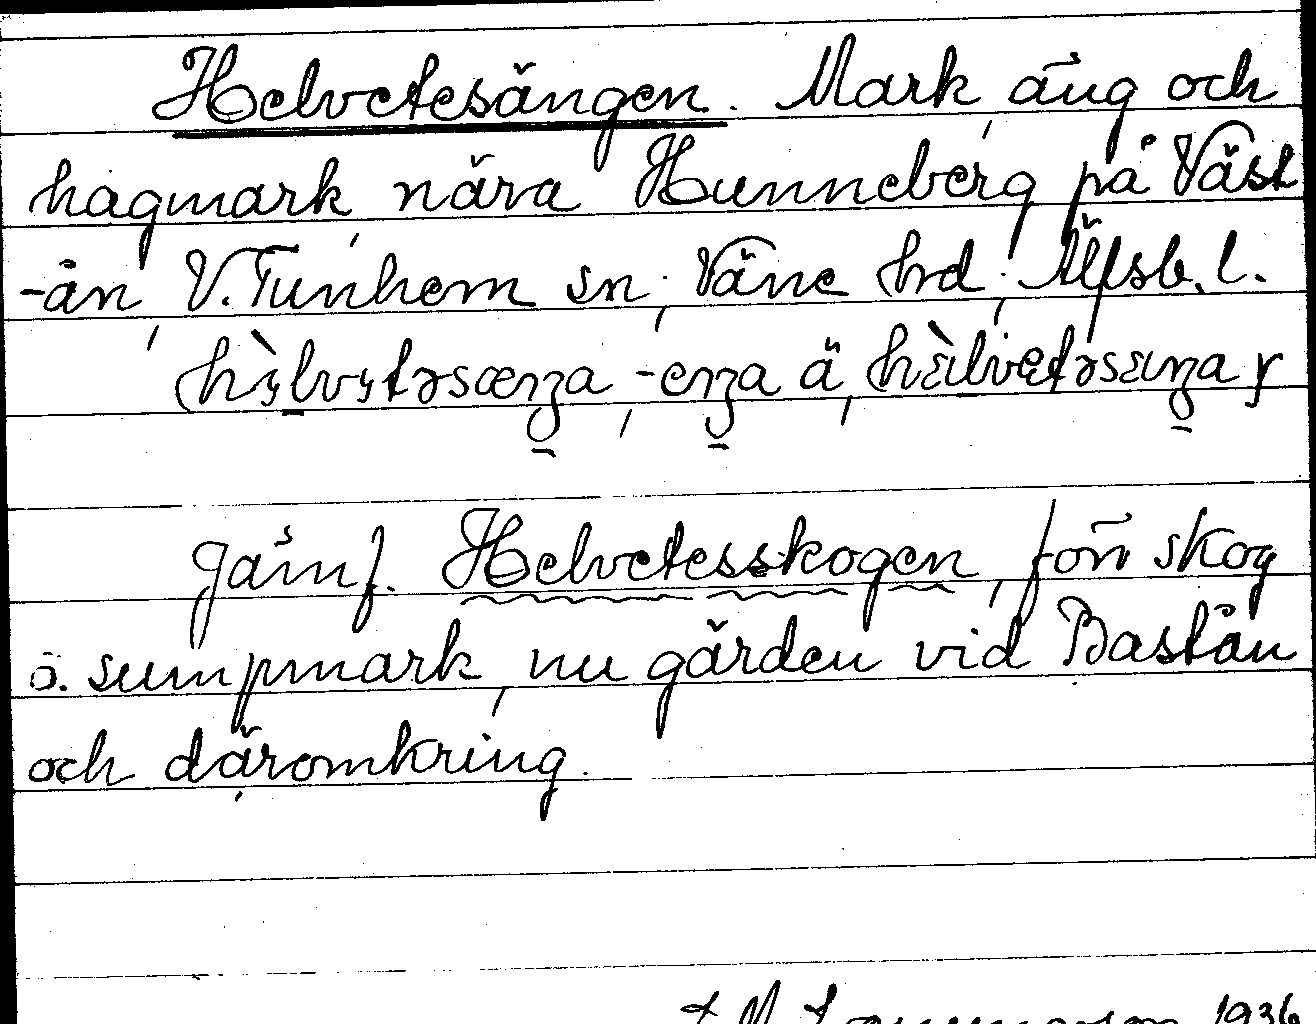 Helvetesängen. Mark, äng och
hagmark, nära Hunneberg på Väst
-ån, V. Tunhem sn; Väne hrd; Älfsb. l.
-eŋa ä,
Jämf. Helvetesskogen, förr skog
o. sumpmark, nu gården vid Bastån
och däromkring.
1936